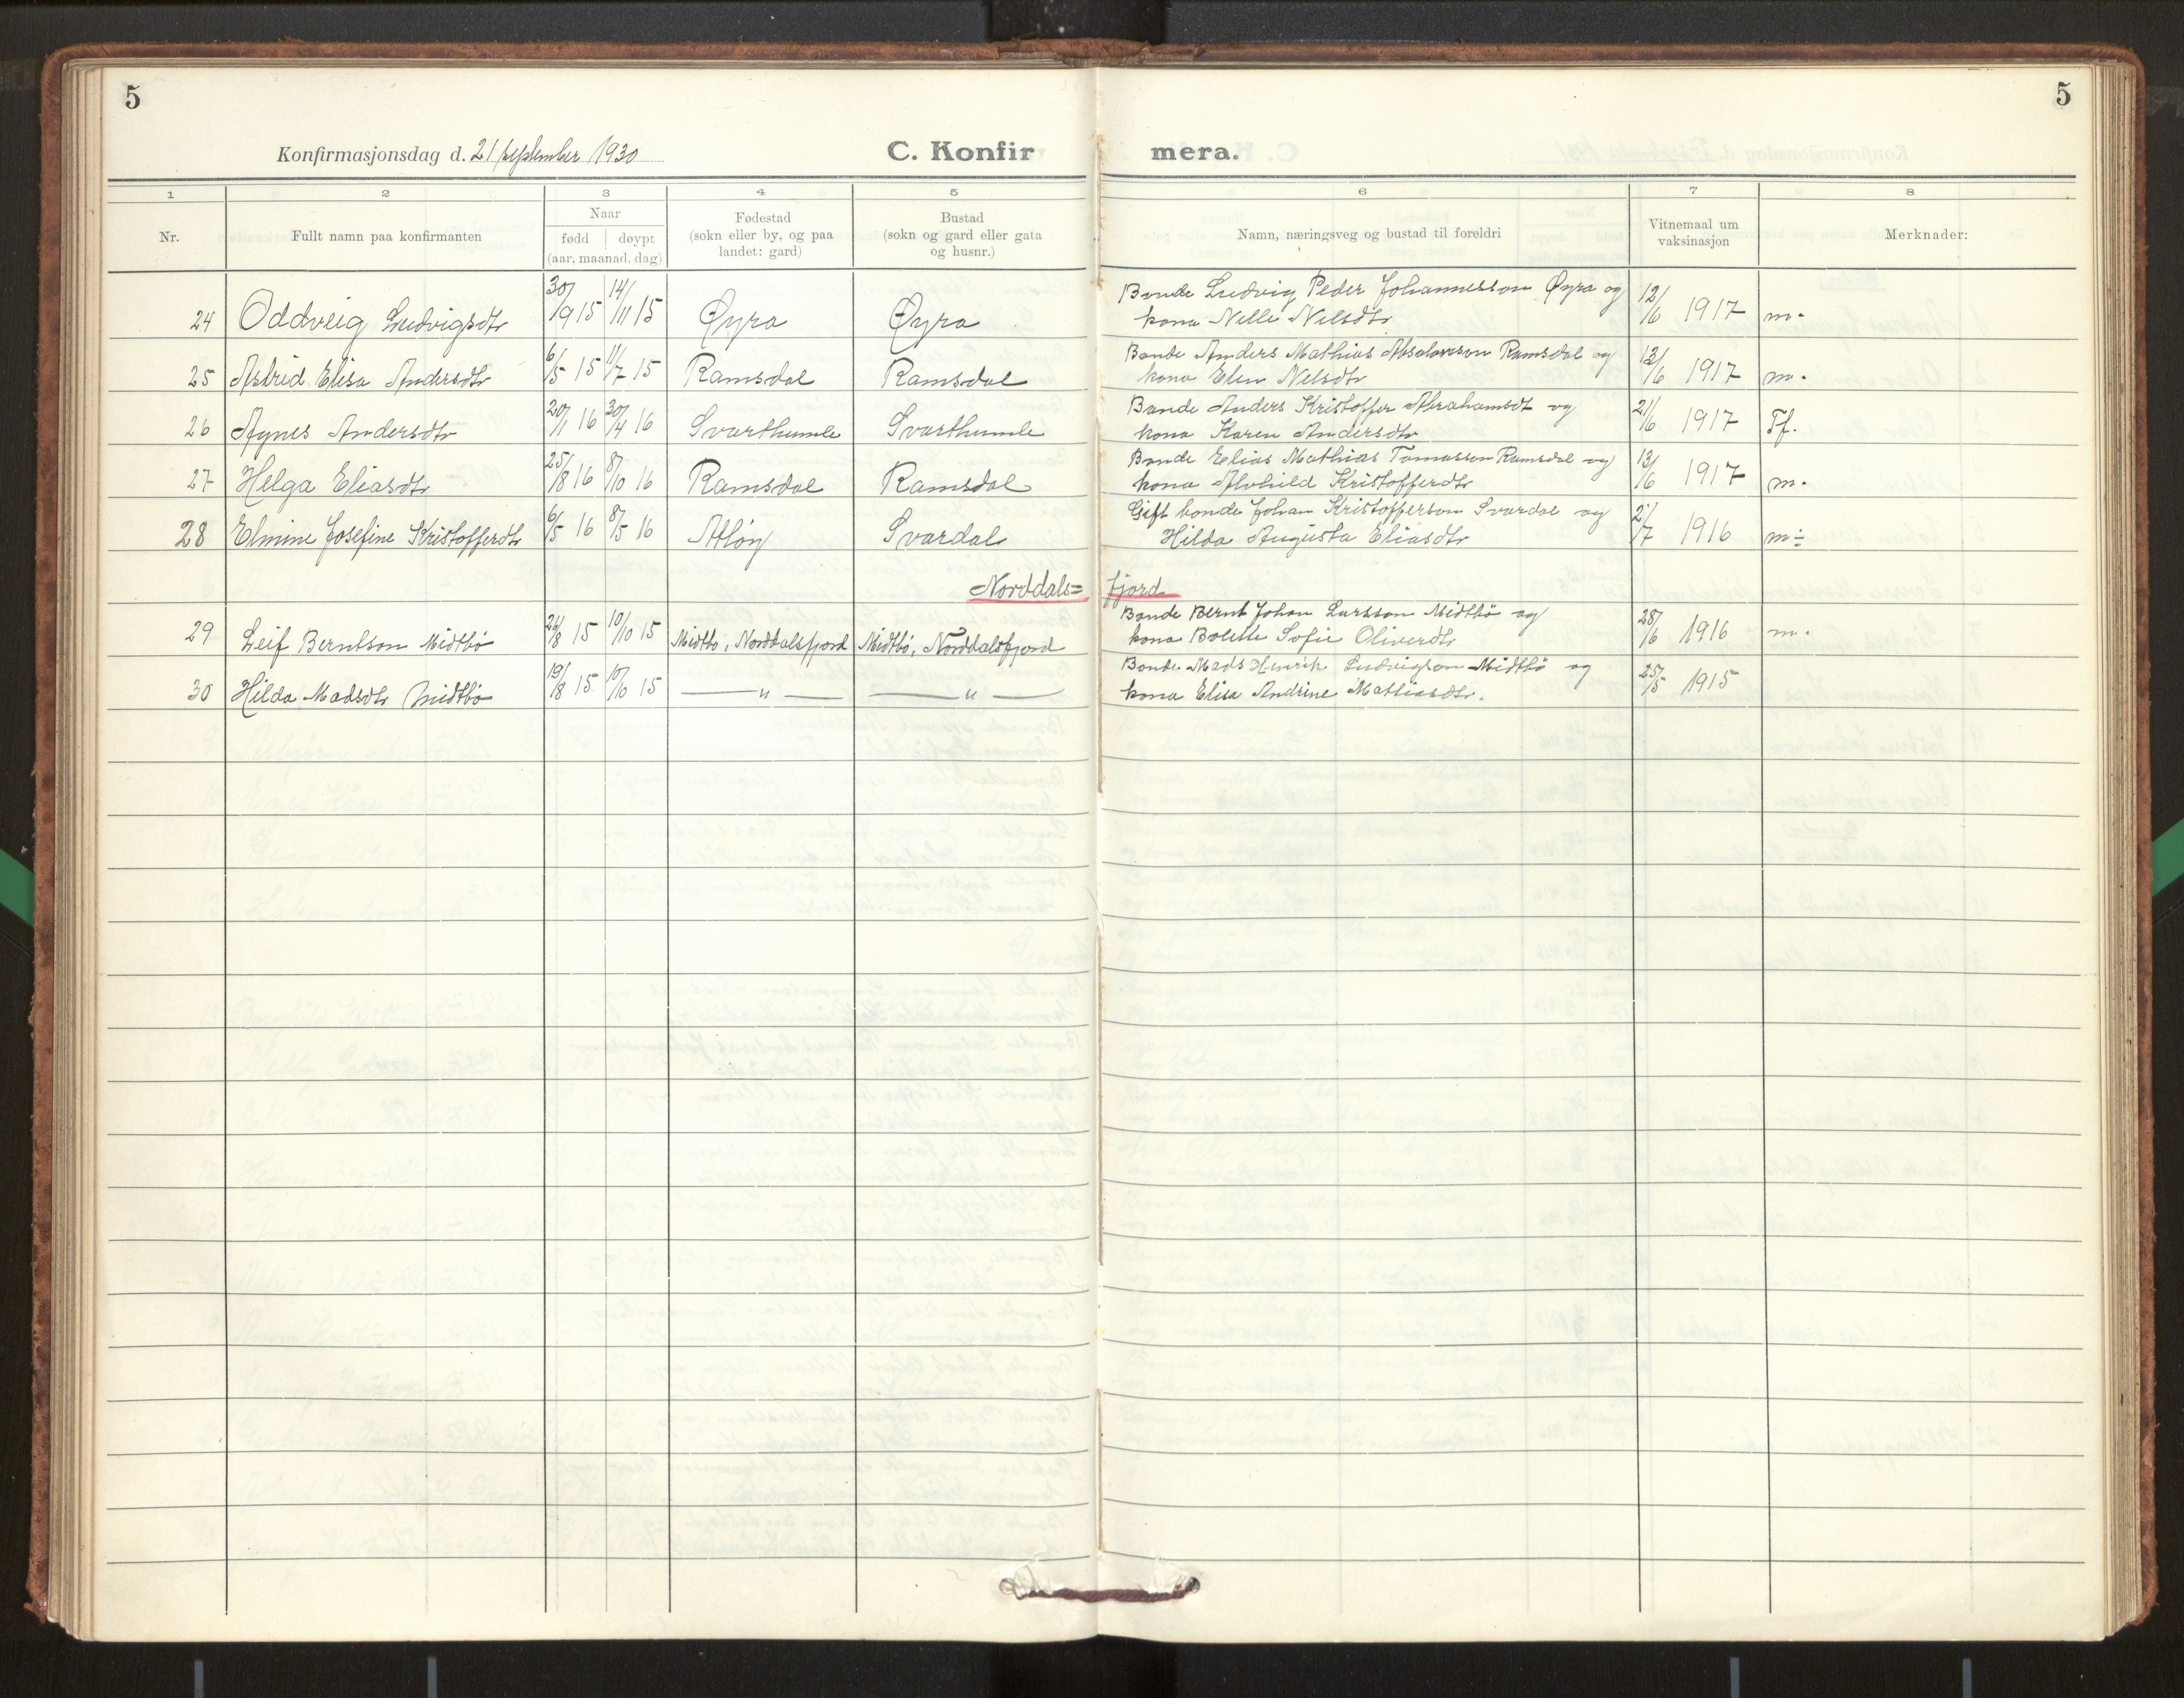 5
5
Konfirmasjonsdag d. 21 september 1930
C. Konfirmera.
1 2 3 4 5 6 7 8
Nr.
Fullt namn paa konfirmanten
Naar
fødd døypt
(aar, maanad, dag)
Fødestad
(sokn eller by, og paa
landet: gard)
Bustad
(sokn og gard eller gata
og husnr.)
Namn, næringsveg og bustad til foreldri
Vitnemaal um
vaksinasjon
Merknader:
24 Oddveig Ludvigsdtr 30/9 15 14/11 15 Øyra Øyra Bonde Ludvig Peder Johannesson Øyra og
kona Nelle Nelsdtr 12/6 1917 m.
25 Astrid Elisa Andersdtr 6/5 15 11/7 15 Ramsdal Ramsdal Bonde Anders Mathias Absalonson Ramsdal og
kona Elen Nelsdtr 13/6 1917 m.
26 Agnes Andersdtr 20/1 16 30/4 16 Svarthumle Svarthumle Bonde Anders Kristoffer Abrahamsdt og
kona Karen Andersdtr 21/6 1917 Tf.
27 Helga Eliasdtr 25/8 16 8/10 16 Ramsdal Ramsdal Bonde Elias Mathias Tomasson Ramsdal og
kona Alvhild Kristofferdtr 13/6 1917 m.
28 Elmine Josefine Kristofferdtr 6/5 16 8/5 16 Atløy Svardal Gift bonde Johan Kristofferson Svardal og
Hilda Augusta Eliasdtr 2/7 1916 m÷
Norddals=fjord
29 Leif Berntson Midtbö /8 15 10/10 15 Midtbö, Norddalsfjord Midtbö, Norddalsfjord Bonde Bernt Johan Larsson Midtbö og
kona Bolette Sofie Oliverdtr 28/6 1916 m.
30 Hilda Madsdtr Midtbö 19/8 15 10/10 15 — " — — " — Bonde Mads Henrik Ludvigson Midtbö og
kona Elisa Andrine Mathiasdtr. 25/5 1915